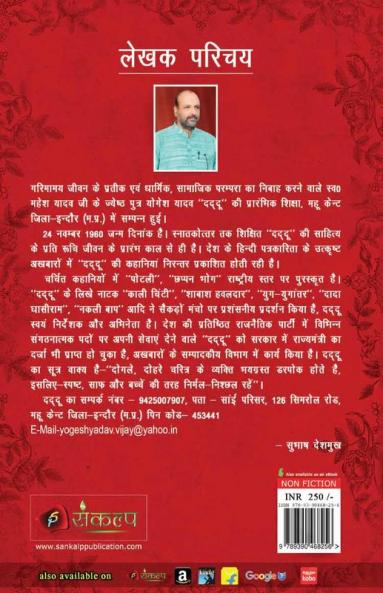 लेखक परिचय
गरिमामय जीवन के प्रतीक एवं धार्मिक, सामाजिक परम्परा का निबाह करने वाले स्व0
महेश यादव जी के ज्येष्ठ पुत्र योगेश यादव "दद्दू" की प्रारंमिक शिक्षा, महू केन्ट
जिला-इन्दौर (म.प्र.) में सम्पन्न हुई।
24 नवम्बर 1960 जन्म दिनांक है। स्नातकोत्तर तक शिक्षित "दद्दू" की साहित्य
के प्रति रूधि जीवन के प्रारंम काल से ही है। देश के हिन्दी पत्रकारिता के उत्कृष्ट
अखबारों में "दद्दू" की कहानियां निरन्तर प्रकाशित होती रही है।
चर्चित कहानियों में "पोटली", "छप्पन भोग" राष्ट्रीय स्तर पर पुरस्कृत है।
"दद्दू" के लिखे नाटक "काली चिंटी", "शाबाश हवलदार", "युग-युगांतर", "दादा
घासीराम", "नकली बाप" आदि ने सैकड़ों मंचो पर प्रशंसनीय प्रदर्शन किया है, दद्दू
स्वयं निर्देशक और अभिनेता है। देश की प्रतिष्ठित राजनैतिक पार्टी में विभिन्न
संगठनात्मक पदों पर अपनी सेवाएं देने वाले "दद्दू" को सरकार में राज्यमंत्री का
दर्जा भी प्राप्त हो चुका है, अखबारों के सम्पादकीय विभाग में कार्य किया है। दद्दू
का सूत्र वाक्य है-"दोगले, दोहरे चरित्र के व्यक्ति भयग्रस्त डरपोक होते है,
इसलिए-स्पष्ट, साफ और बच्चें की तरह निर्मल-निश्छल रहें"।
दद्दू का सम्पर्क नंबर - 9425007907, पता - सांई परिसर, 126 सिमरोल रोड,
महू केन्ट जिला-इन्दौर (म.प्र.) पिन कोड- 453441
E-Mail-yogeshyadav.vijay@yahoo.in
- सुभाष देशमुख
Also available as an eBook
NON FICTION
INR 250 /-
ISBN 978-93-90468-25-6
9789390468256
संकल्प
www.sankalppublication.com
also available on
संकल्प
a
kindle
Google
kobo